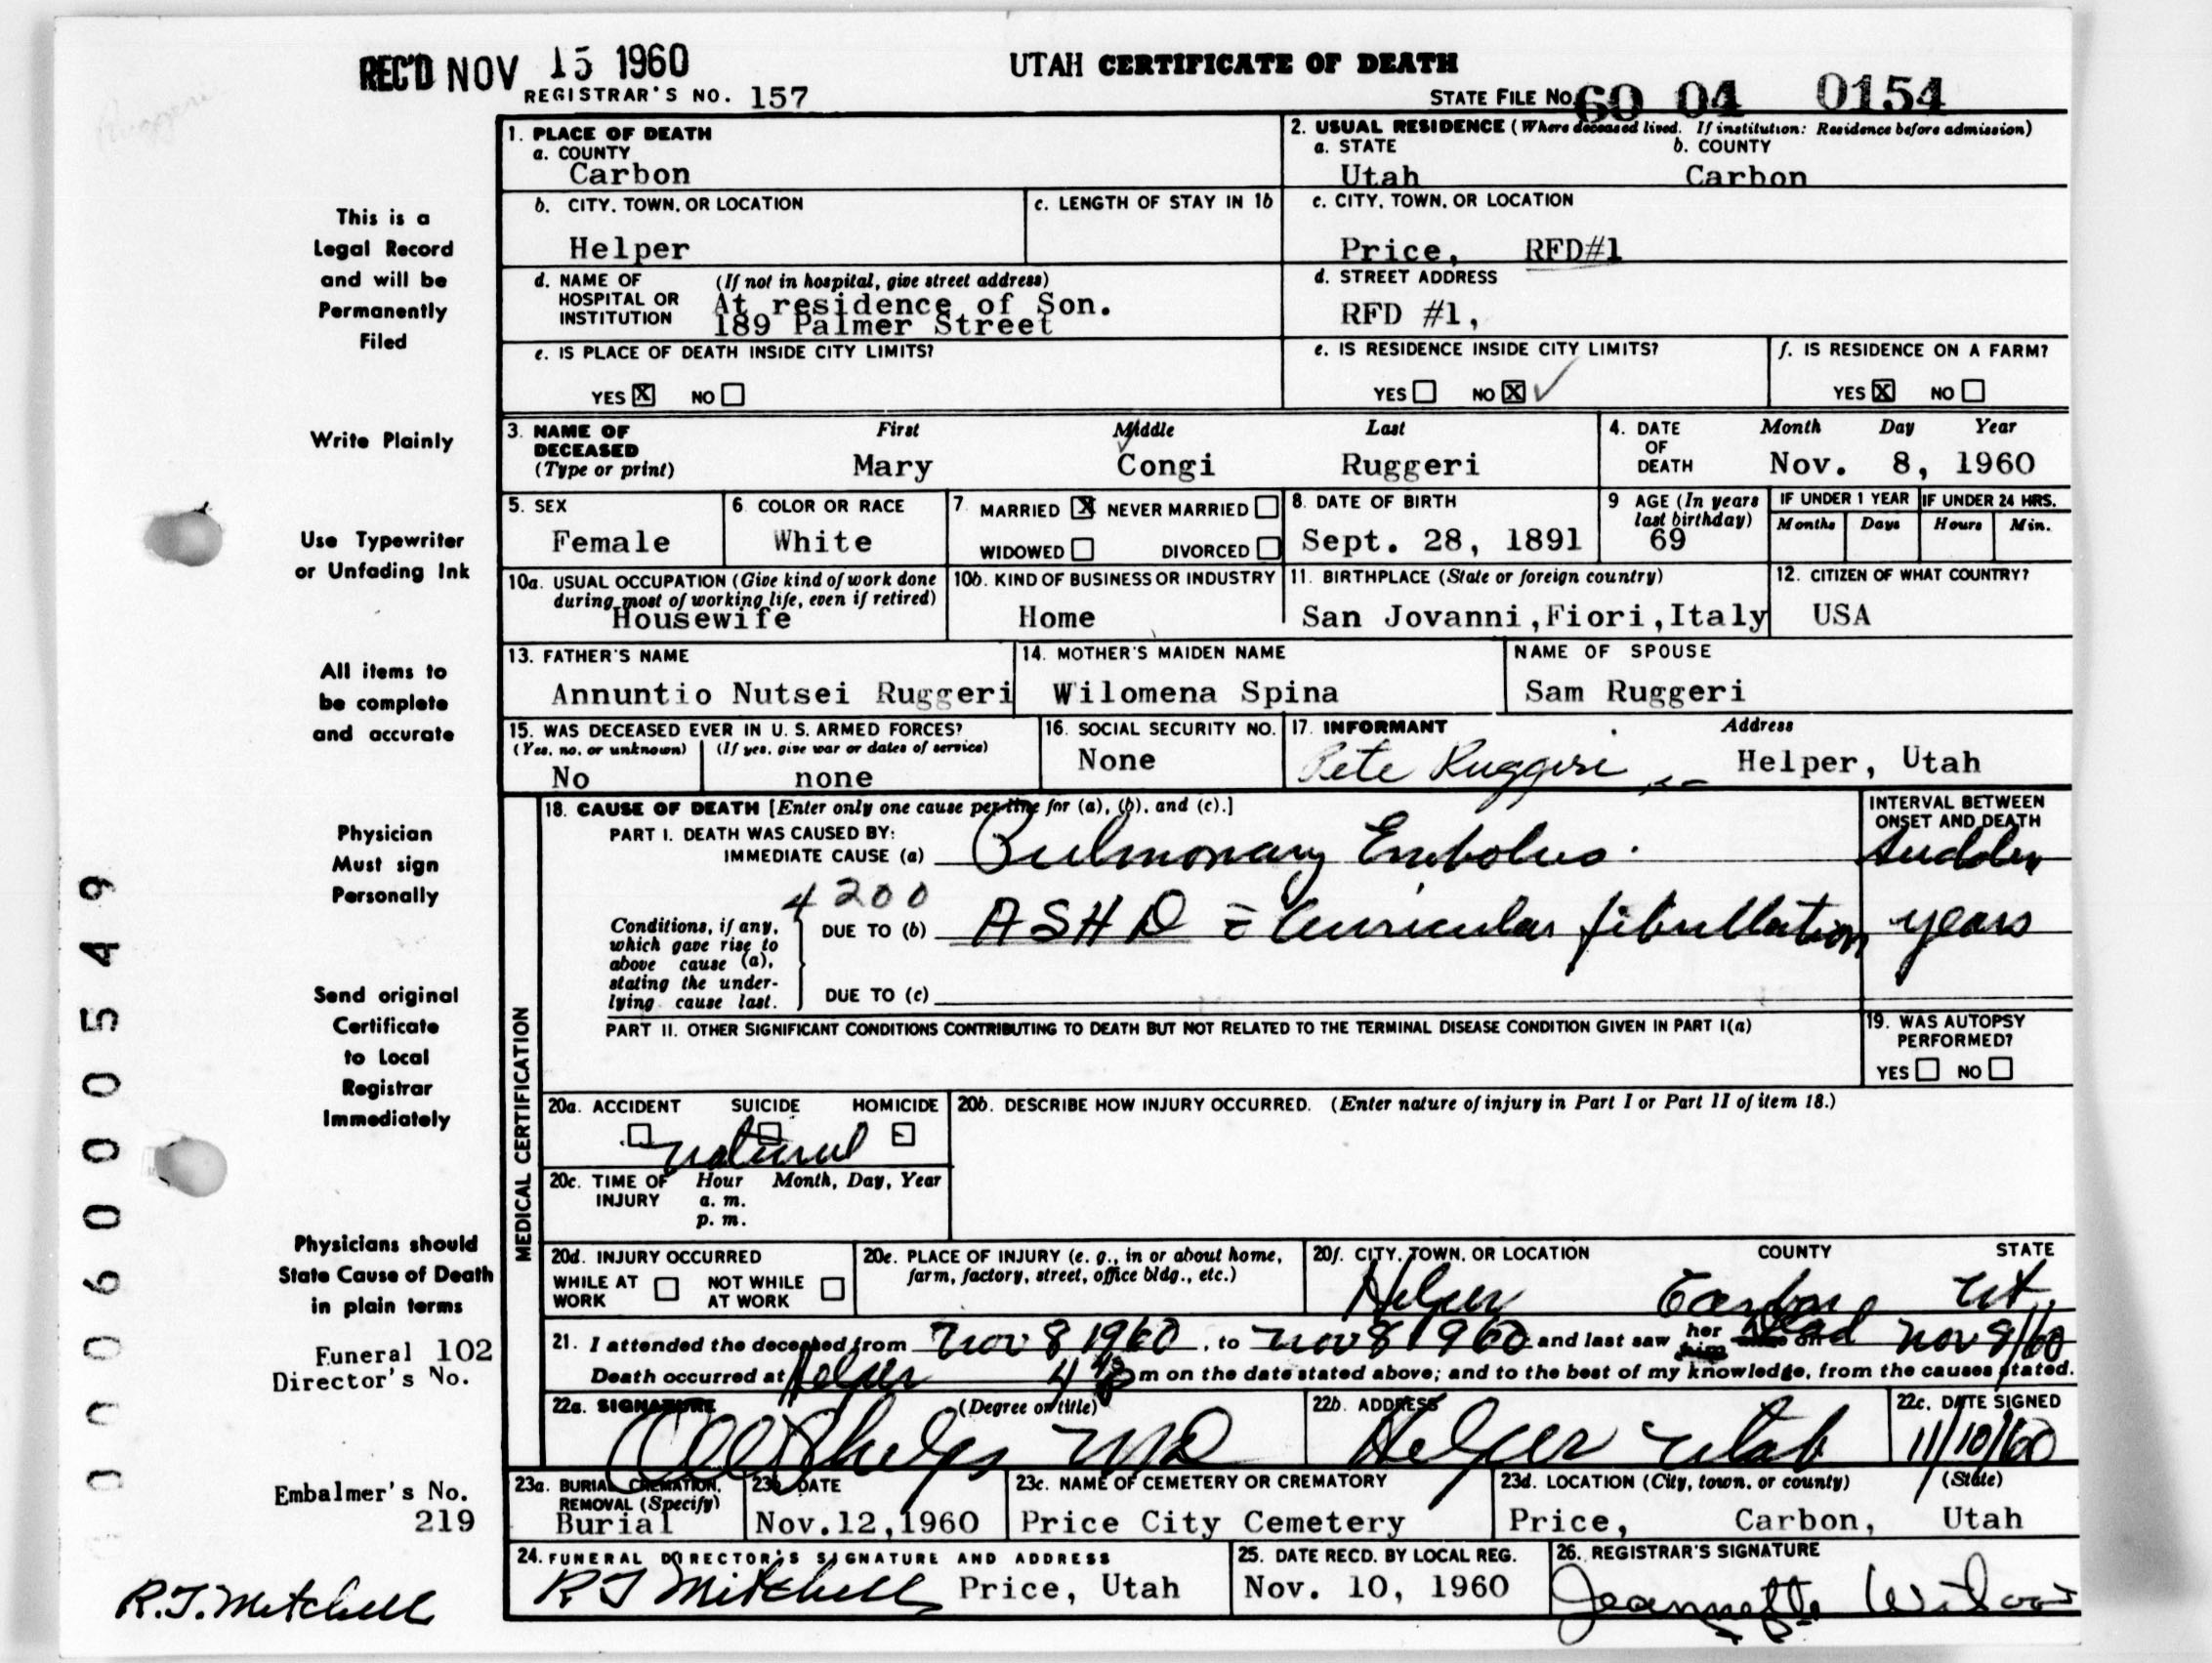 REC'D NOV 15 1960
UTAH CERTIFICATE OF DEATH
REGISTRAR'S NO. 157
STATE FILE NO. 60 04 0154
Ruggeri
1. PLACE OF DEATH
a. COUNTY
Carbon
2. USUAL RESIDENCE (Where deceased lived. If institution: Residence before admission)
a. STATE b. COUNTY
Utah Carbon
b. CITY, TOWN, OR LOCATION
Helper
c. LENGTH OF STAY IN 1b
c. CITY, TOWN, OR LOCATION
Price, RFD#1
d. NAME OF HOSPITAL OR INSTITUTION (If not in hospital, give street address)
At residence of Son.
189 Palmer Street
d. STREET ADDRESS
RFD #1,
e. IS PLACE OF DEATH INSIDE CITY LIMITS?
YES X NO
e. IS RESIDENCE INSIDE CITY LIMITS?
YES NO X ✓
f. IS RESIDENCE ON A FARM?
YES X NO
3. NAME OF DECEASED (Type or print)
First Middle Last
Mary Congi Ruggeri
4. DATE OF DEATH
Month Day Year
Nov. 8, 1960
5. SEX
Female
6. COLOR OR RACE
White
7. MARRIED X NEVER MARRIED
WIDOWED DIVORCED
8. DATE OF BIRTH
Sept. 28, 1891
9 AGE (In years last birthday)
69
IF UNDER 1 YEAR
Months Days
IF UNDER 24 HRS.
Hours Min.
10a. USUAL OCCUPATION (Give kind of work done during most of working life, even if retired)
Housewife
10b. KIND OF BUSINESS OR INDUSTRY
Home
11. BIRTHPLACE (State or foreign country)
San Jovanni,Fiori,Italy
12. CITIZEN OF WHAT COUNTRY?
USA
13. FATHER'S NAME
Annuntio Nutsei Ruggeri
14. MOTHER'S MAIDEN NAME
Wilomena Spina
NAME OF SPOUSE
Sam Ruggeri
15. WAS DECEASED EVER IN U. S. ARMED FORCES?
(Yes, no, or unknown) (If yes, give war or dates of service)
No none
16. SOCIAL SECURITY NO.
None
17. INFORMANT Address
Pete Ruggeri Helper, Utah
MEDICAL CERTIFICATION
18. CAUSE OF DEATH [Enter only one cause per line for (a), (b), and (c).]
PART I. DEATH WAS CAUSED BY:
IMMEDIATE CAUSE (a) Pulmonary Embolus.
INTERVAL BETWEEN ONSET AND DEATH
Sudden
4200
Conditions, if any, which gave rise to above cause (a), stating the underlying cause last.
DUE TO (b) ASHD c̄ auricular fibrillation years
DUE TO (c)
PART II. OTHER SIGNIFICANT CONDITIONS CONTRIBUTING TO DEATH BUT NOT RELATED TO THE TERMINAL DISEASE CONDITION GIVEN IN PART I(a)
19. WAS AUTOPSY PERFORMED?
YES NO
20a. ACCIDENT SUICIDE HOMICIDE
natural
20b. DESCRIBE HOW INJURY OCCURRED. (Enter nature of injury in Part I or Part II of item 18.)
20c. TIME OF INJURY Hour Month, Day, Year
a. m.
p. m.
20d. INJURY OCCURRED
WHILE AT WORK NOT WHILE AT WORK
20e. PLACE OF INJURY (e. g., in or about home, farm, factory, street, office bldg., etc.)
20f. CITY, TOWN, OR LOCATION COUNTY STATE
Helper Carbon Ut.
21. I attended the deceased from Nov 8 1960, to Nov 8 1960 and last saw her him dead on Nov 8/60
Death occurred at Helper 4 m on the date stated above; and to the best of my knowledge, from the causes stated.
22a. SIGNATURE (Degree or title)
Phelps MD
22b. ADDRESS
Helper Utah
22c. DATE SIGNED
11/10/60
23a. BURIAL, CREMATION, REMOVAL (Specify)
Burial
23b. DATE
Nov.12,1960
23c. NAME OF CEMETERY OR CREMATORY
Price City Cemetery
23d. LOCATION (City, town, or county) (State)
Price, Carbon, Utah
24. FUNERAL DIRECTOR'S SIGNATURE AND ADDRESS
R J Mitchell Price, Utah
25. DATE RECD. BY LOCAL REG.
Nov. 10, 1960
26. REGISTRAR'S SIGNATURE
Jeannette Wilson
This is a
Legal Record
and will be
Permanently
Filed
Write Plainly
Use Typewriter
or Unfading Ink
All items to
be complete
and accurate
Physician
Must sign
Personally
Send original
Certificate
to Local
Registrar
Immediately
Physicians should
State Cause of Death
in plain terms
Funeral 102
Director's No.
Embalmer's No.
219
R.J. Mitchell
00060000549